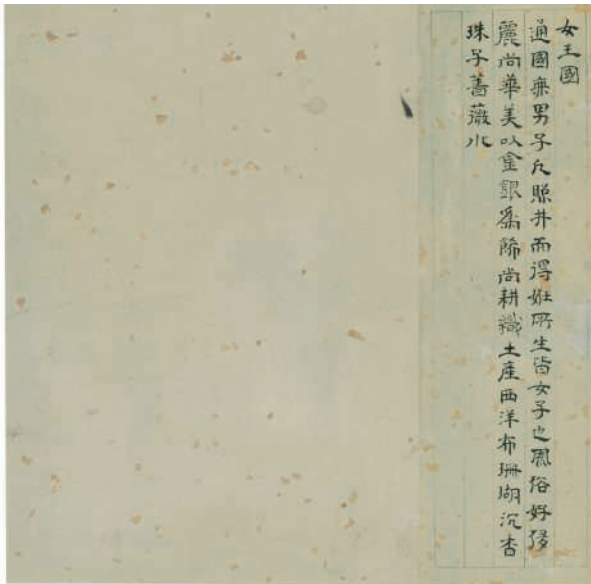 女王國
通國無男子凡照井而得姙所生皆女子也風俗好侈
麗尚華美以金銀爲飾尚耕織土產西洋布珊瑚沉香
珠子薔薇水